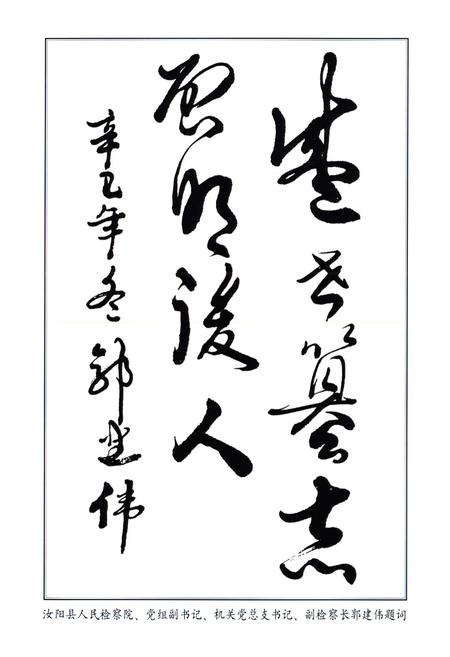 盛世纂志
启明後人
辛巳年冬郭建伟
汝阳县人民检察院、党组副书记、机关党总支书记、副检察长郭建伟题词